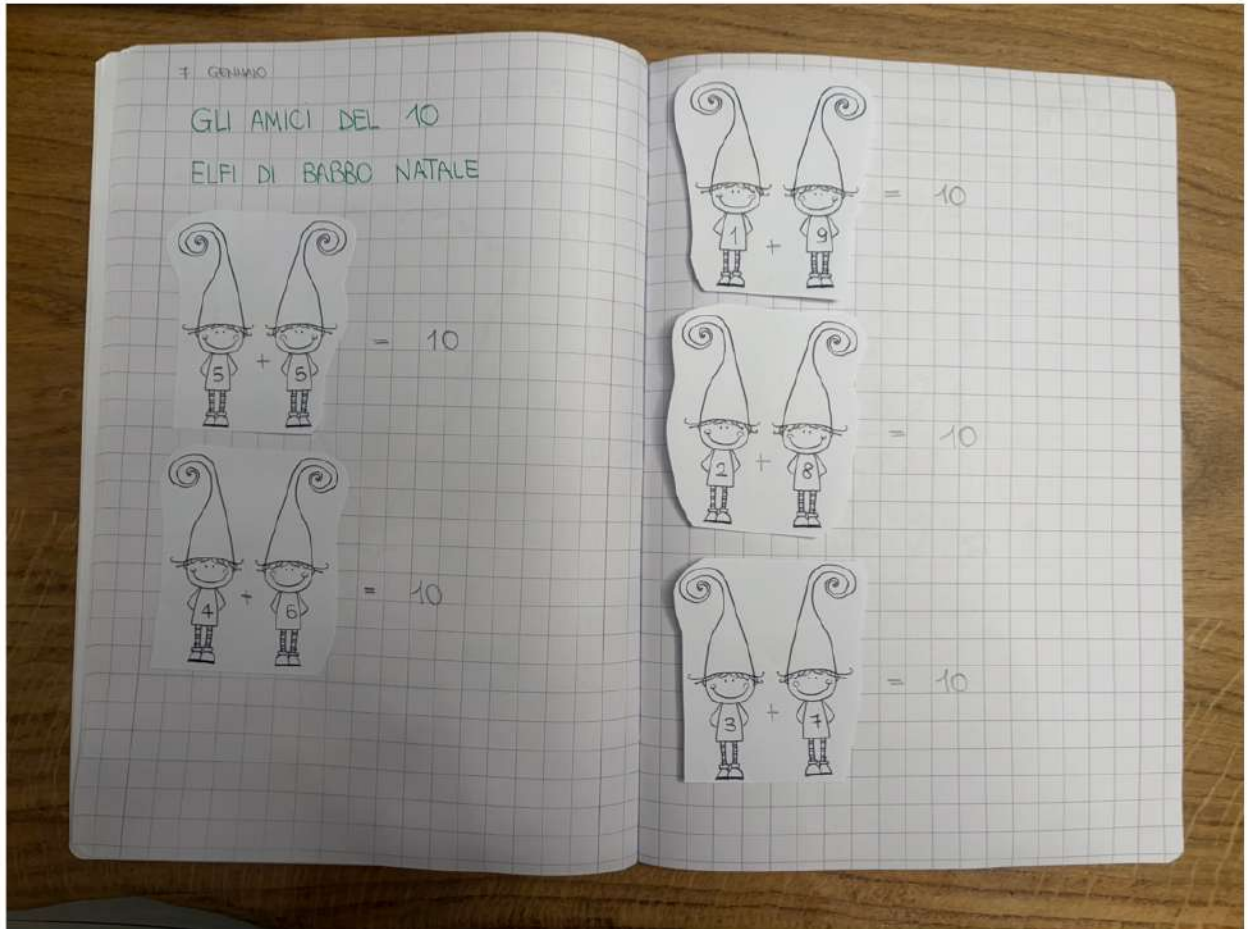 7 GENNAIO
GLI AMICI DEL 10
ELFI DI BABBO NATALE
5 + 5 = 10
4 + 6 = 10
1 + 9 = 10
2 + 8 = 10
3 + 7 = 10